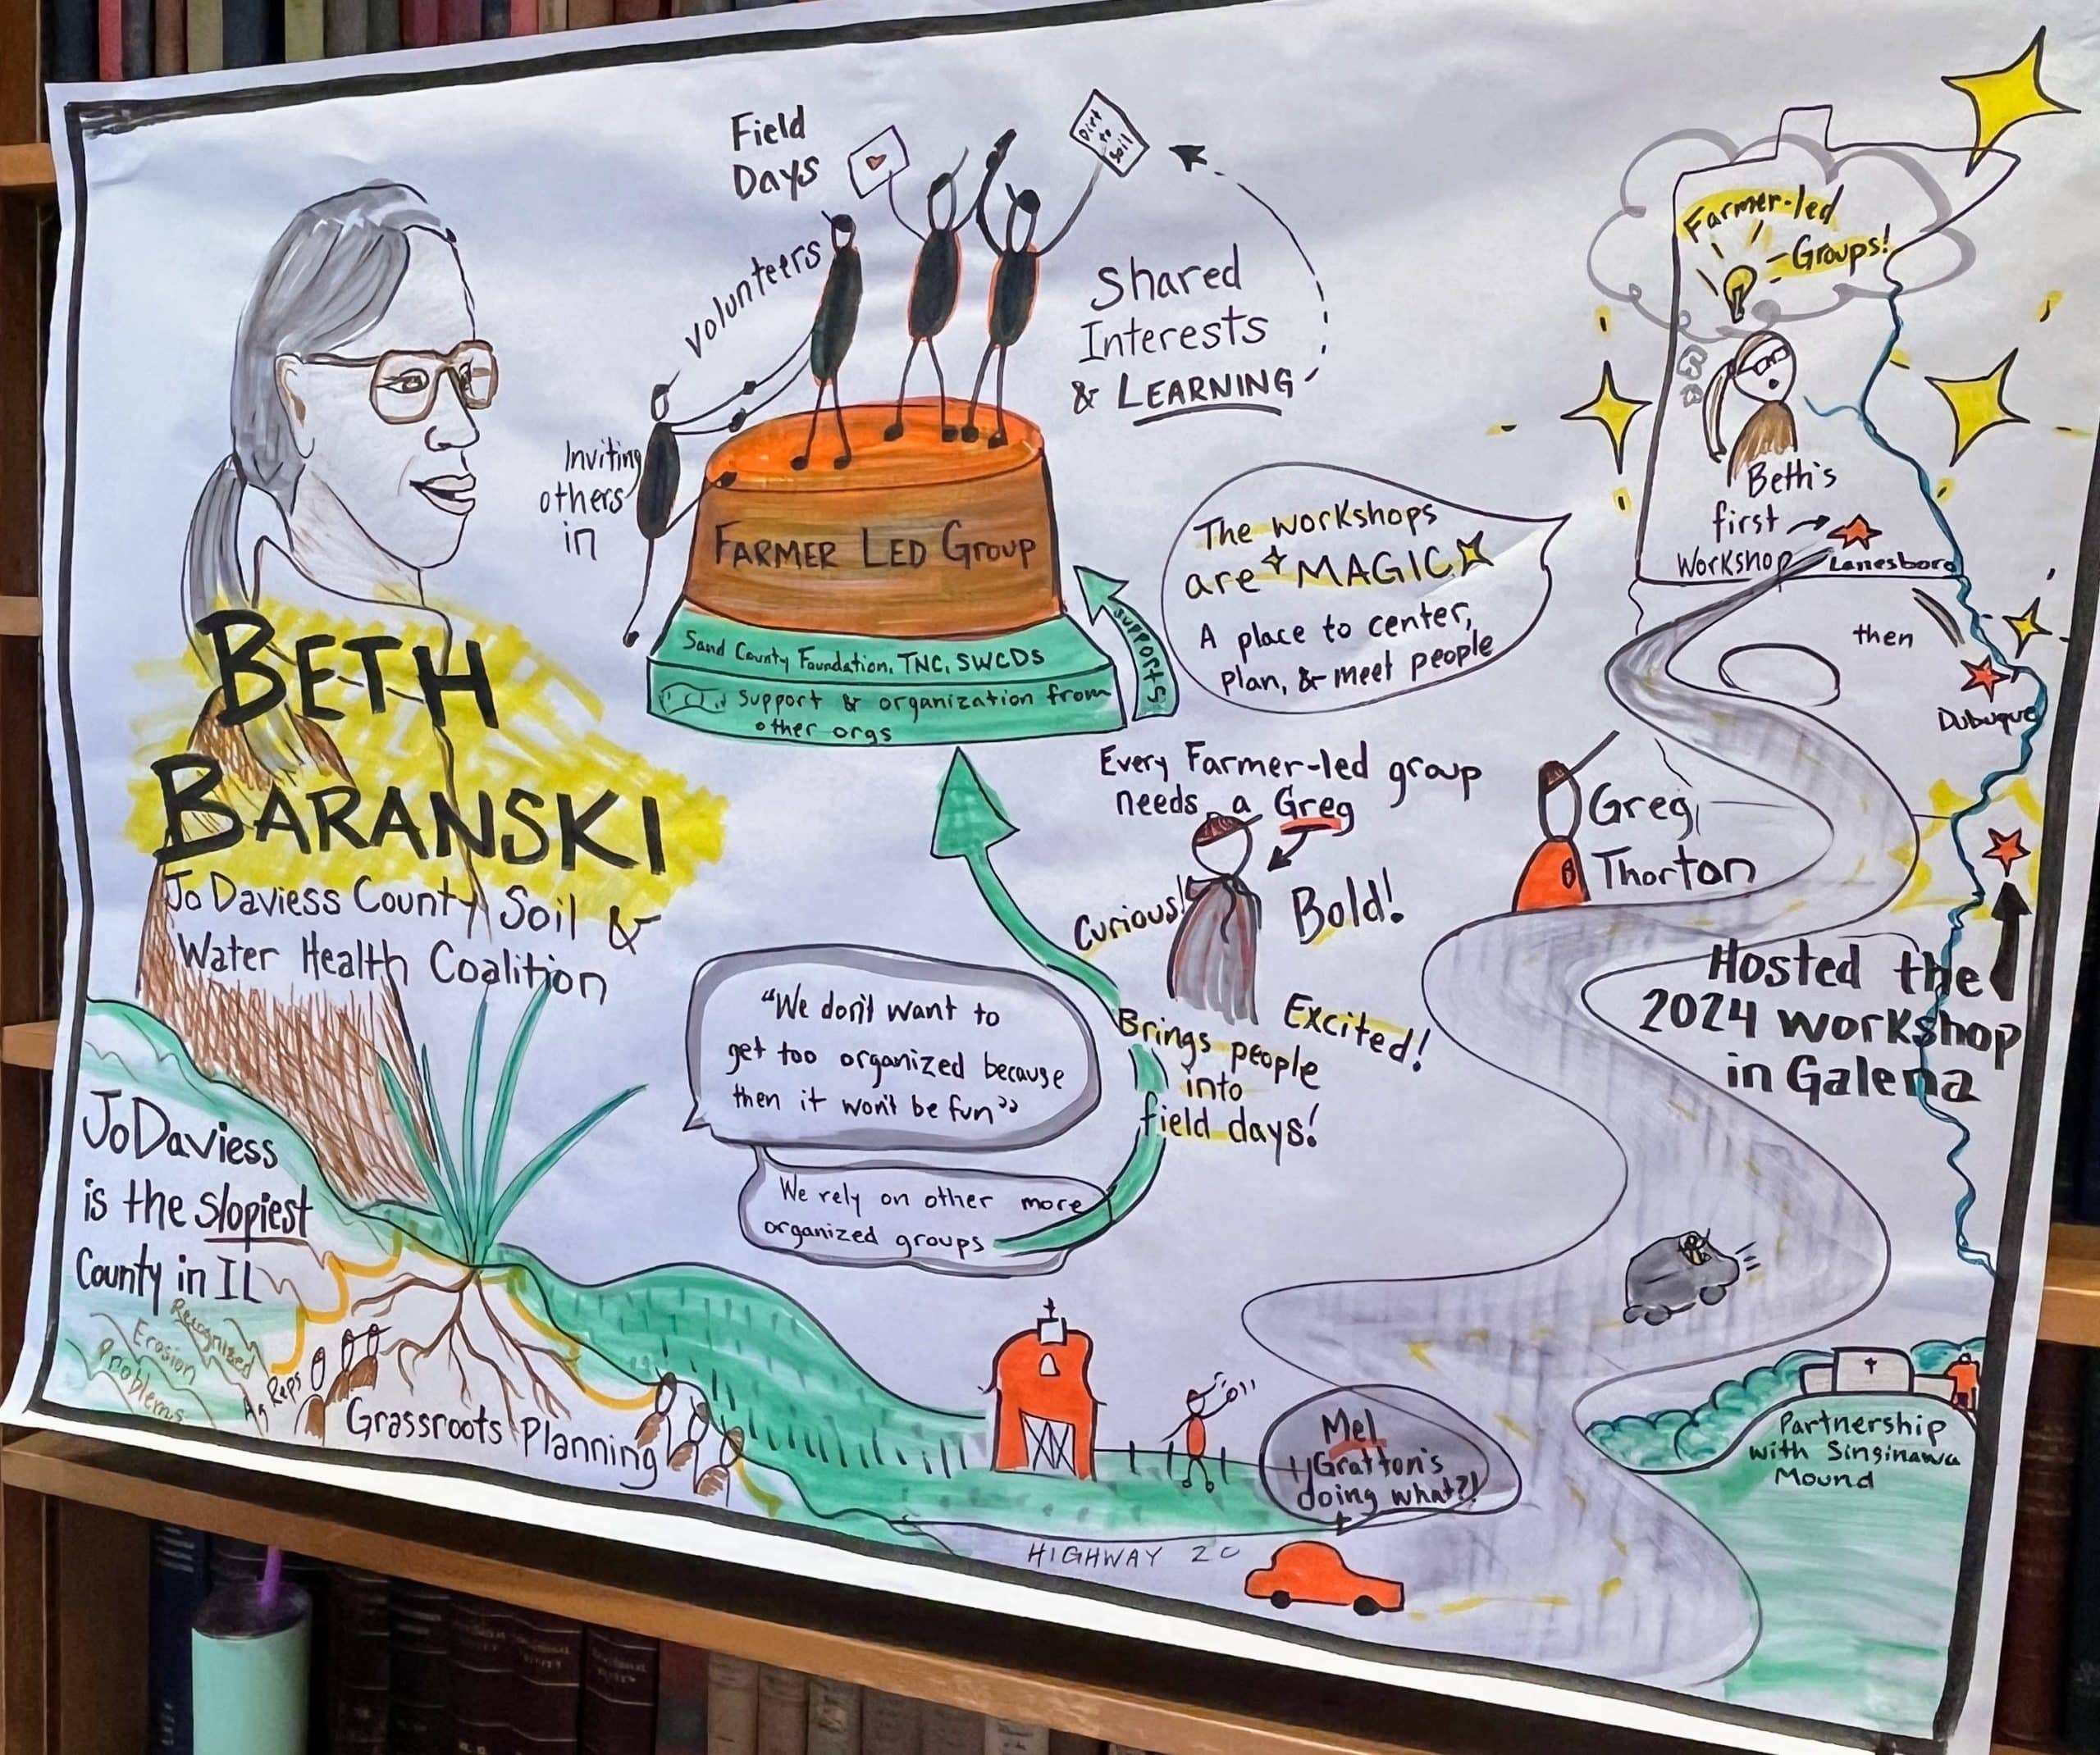 Field
Days
Volunteers
Inviting
others
in
Dirt
to
Soil
Shared
Interests
& LEARNING
FARMER LED GROUP
Sand County Foundation, TNC, SWCDS
Support & organization from
other orgs
Supports
The workshops
are MAGIC
A place to center,
plan, & meet people
Farmer-led
Groups!
Beth's
first
Workshop
Lanesboro
then
Dubuque
BETH
BARANSKI
Jo Daviess County Soil &
Water Health Coalition
Every Farmer-led group
needs a Greg
Curious!
Bold!
Excited!
Brings people
into
field days!
Greg
Thorton
Hosted the
2024 workshop
in Galena
"We don't want to
get too organized because
then it won't be fun"
We rely on other more
organized groups
JoDaviess
is the slopiest
County in IL
Recognized
Erosion
Problems
Ag Reps
Grassroots Planning
Mel
Gratton's
doing what?!
HIGHWAY 20
Partnership
with Sinsinawa
Mound